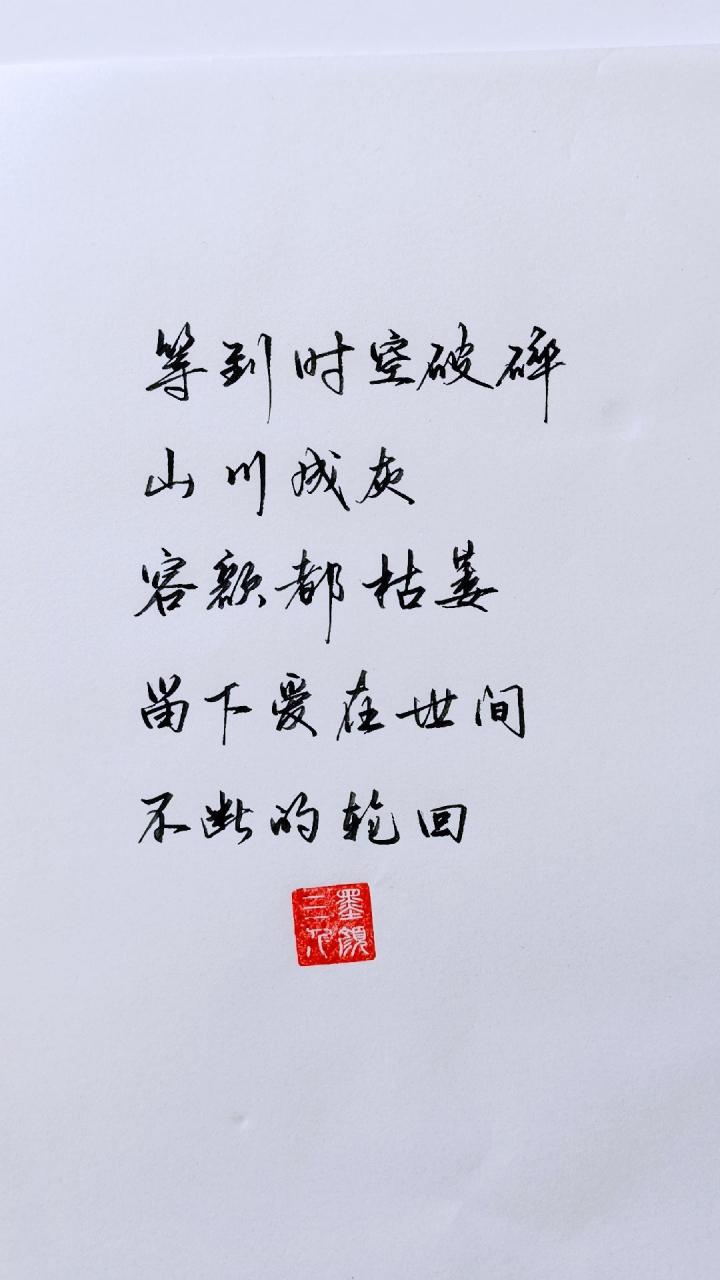 等到时空破碎
山川成灰
容颜都枯萎
留下爱在世间
不断的轮回